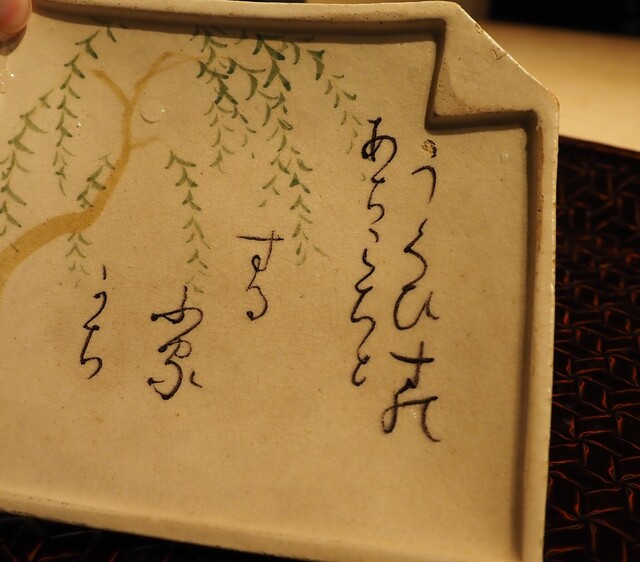 うくひすの
あちこちと
する
小家
かち